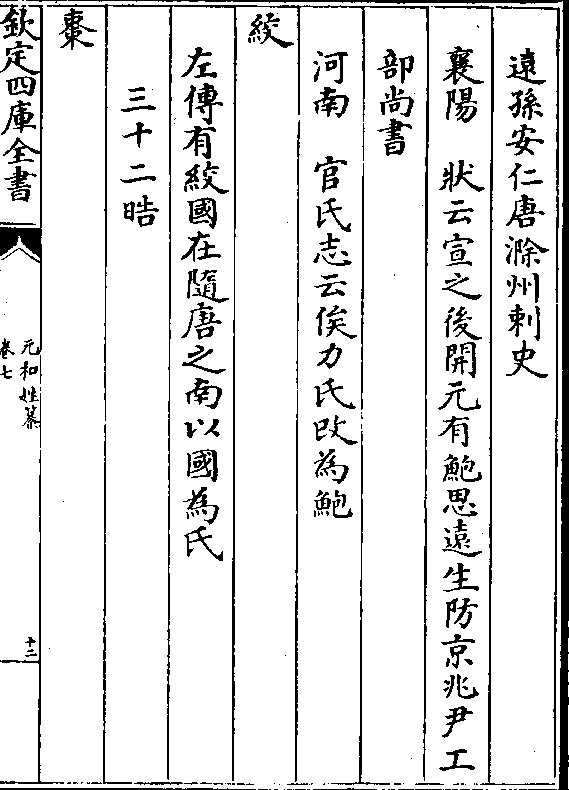 遠孫安仁唐滁州刺史
襄陽　狀云宣之後開元有鮑思遠生防京兆尹工
部尚書
河南　官氏志云俟力氏改為鮑
絞
左傳有絞國在隨唐之南以國為氏
三十二晧
棗
欽定四庫全書
元和姓纂
卷七
十二